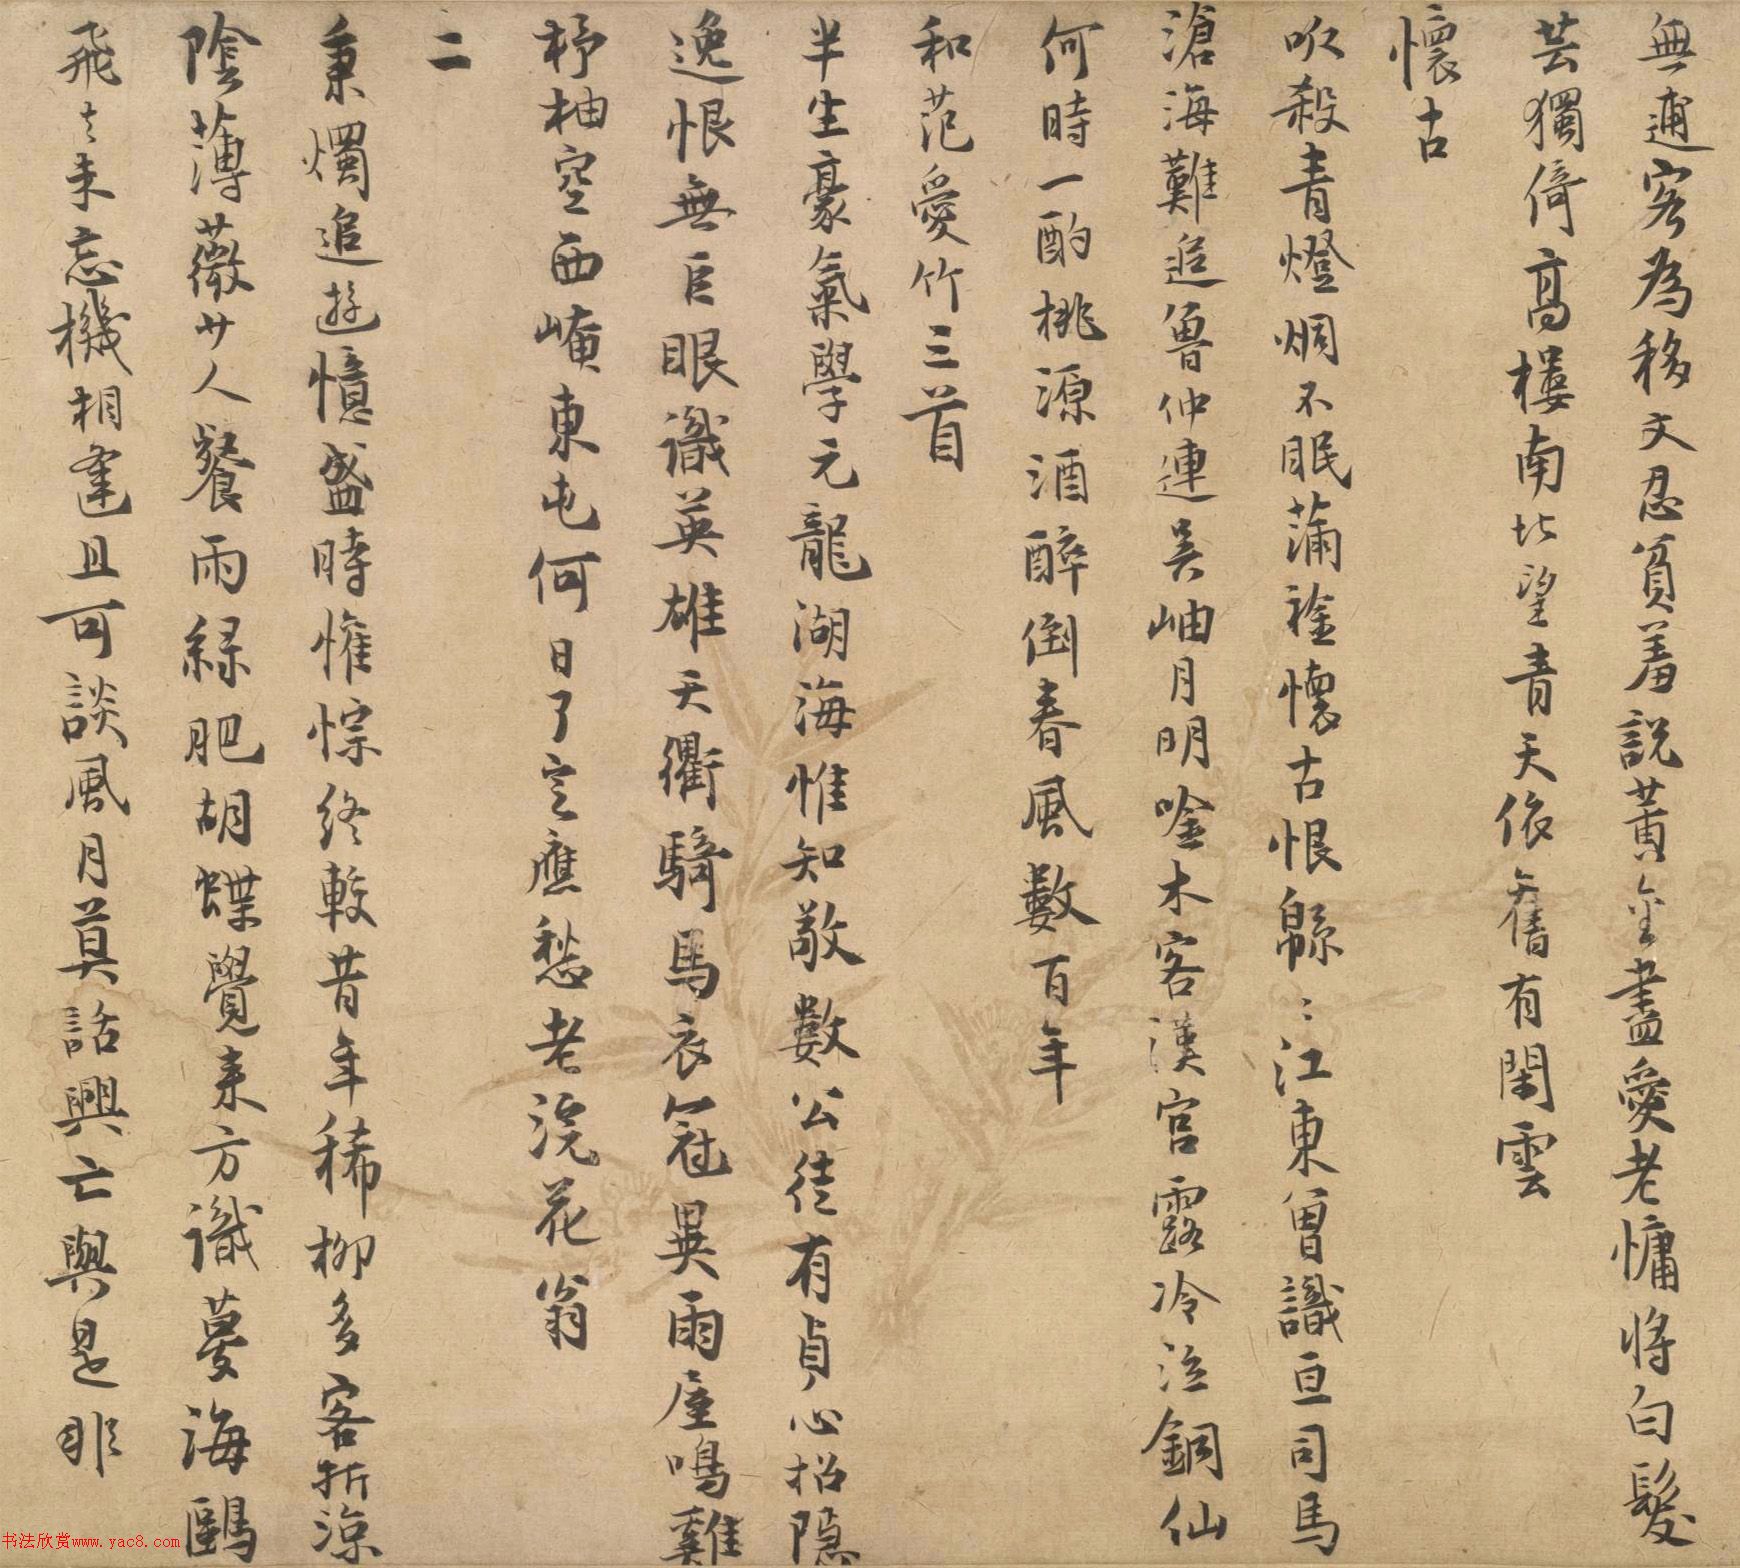 無逋客為移文忍貧羞說黃金盡愛老慵將白髮
芸獨倚高樓南北望青天依舊有閑雲
懷古
吹殺青燈炯不眠蒲襟懷古恨緜〻江東曾識亘司馬
滄海難追魯仲連吳岫月明唫木客漢宮露冷泣銅仙
何時一酌桃源酒醉倒春風數百年
和范愛竹三首
半生豪氣學元龍湖海惟知敬數公徒有貞心招隱
逸恨無巨眼識英雄天衢騎馬衣冠異雨屋鳴雞
杼柚空西崦東屯何日了定應愁老浣花翁
二
秉燭追遊憶盛時惟悰終較昔年稀柳多客折涼
陰薄薇少人餐雨綠肥胡蝶覺来方識夢海鷗
飛去未忘機相逢且可談風月莫話興亡與是非
书法欣赏www.yac8.com